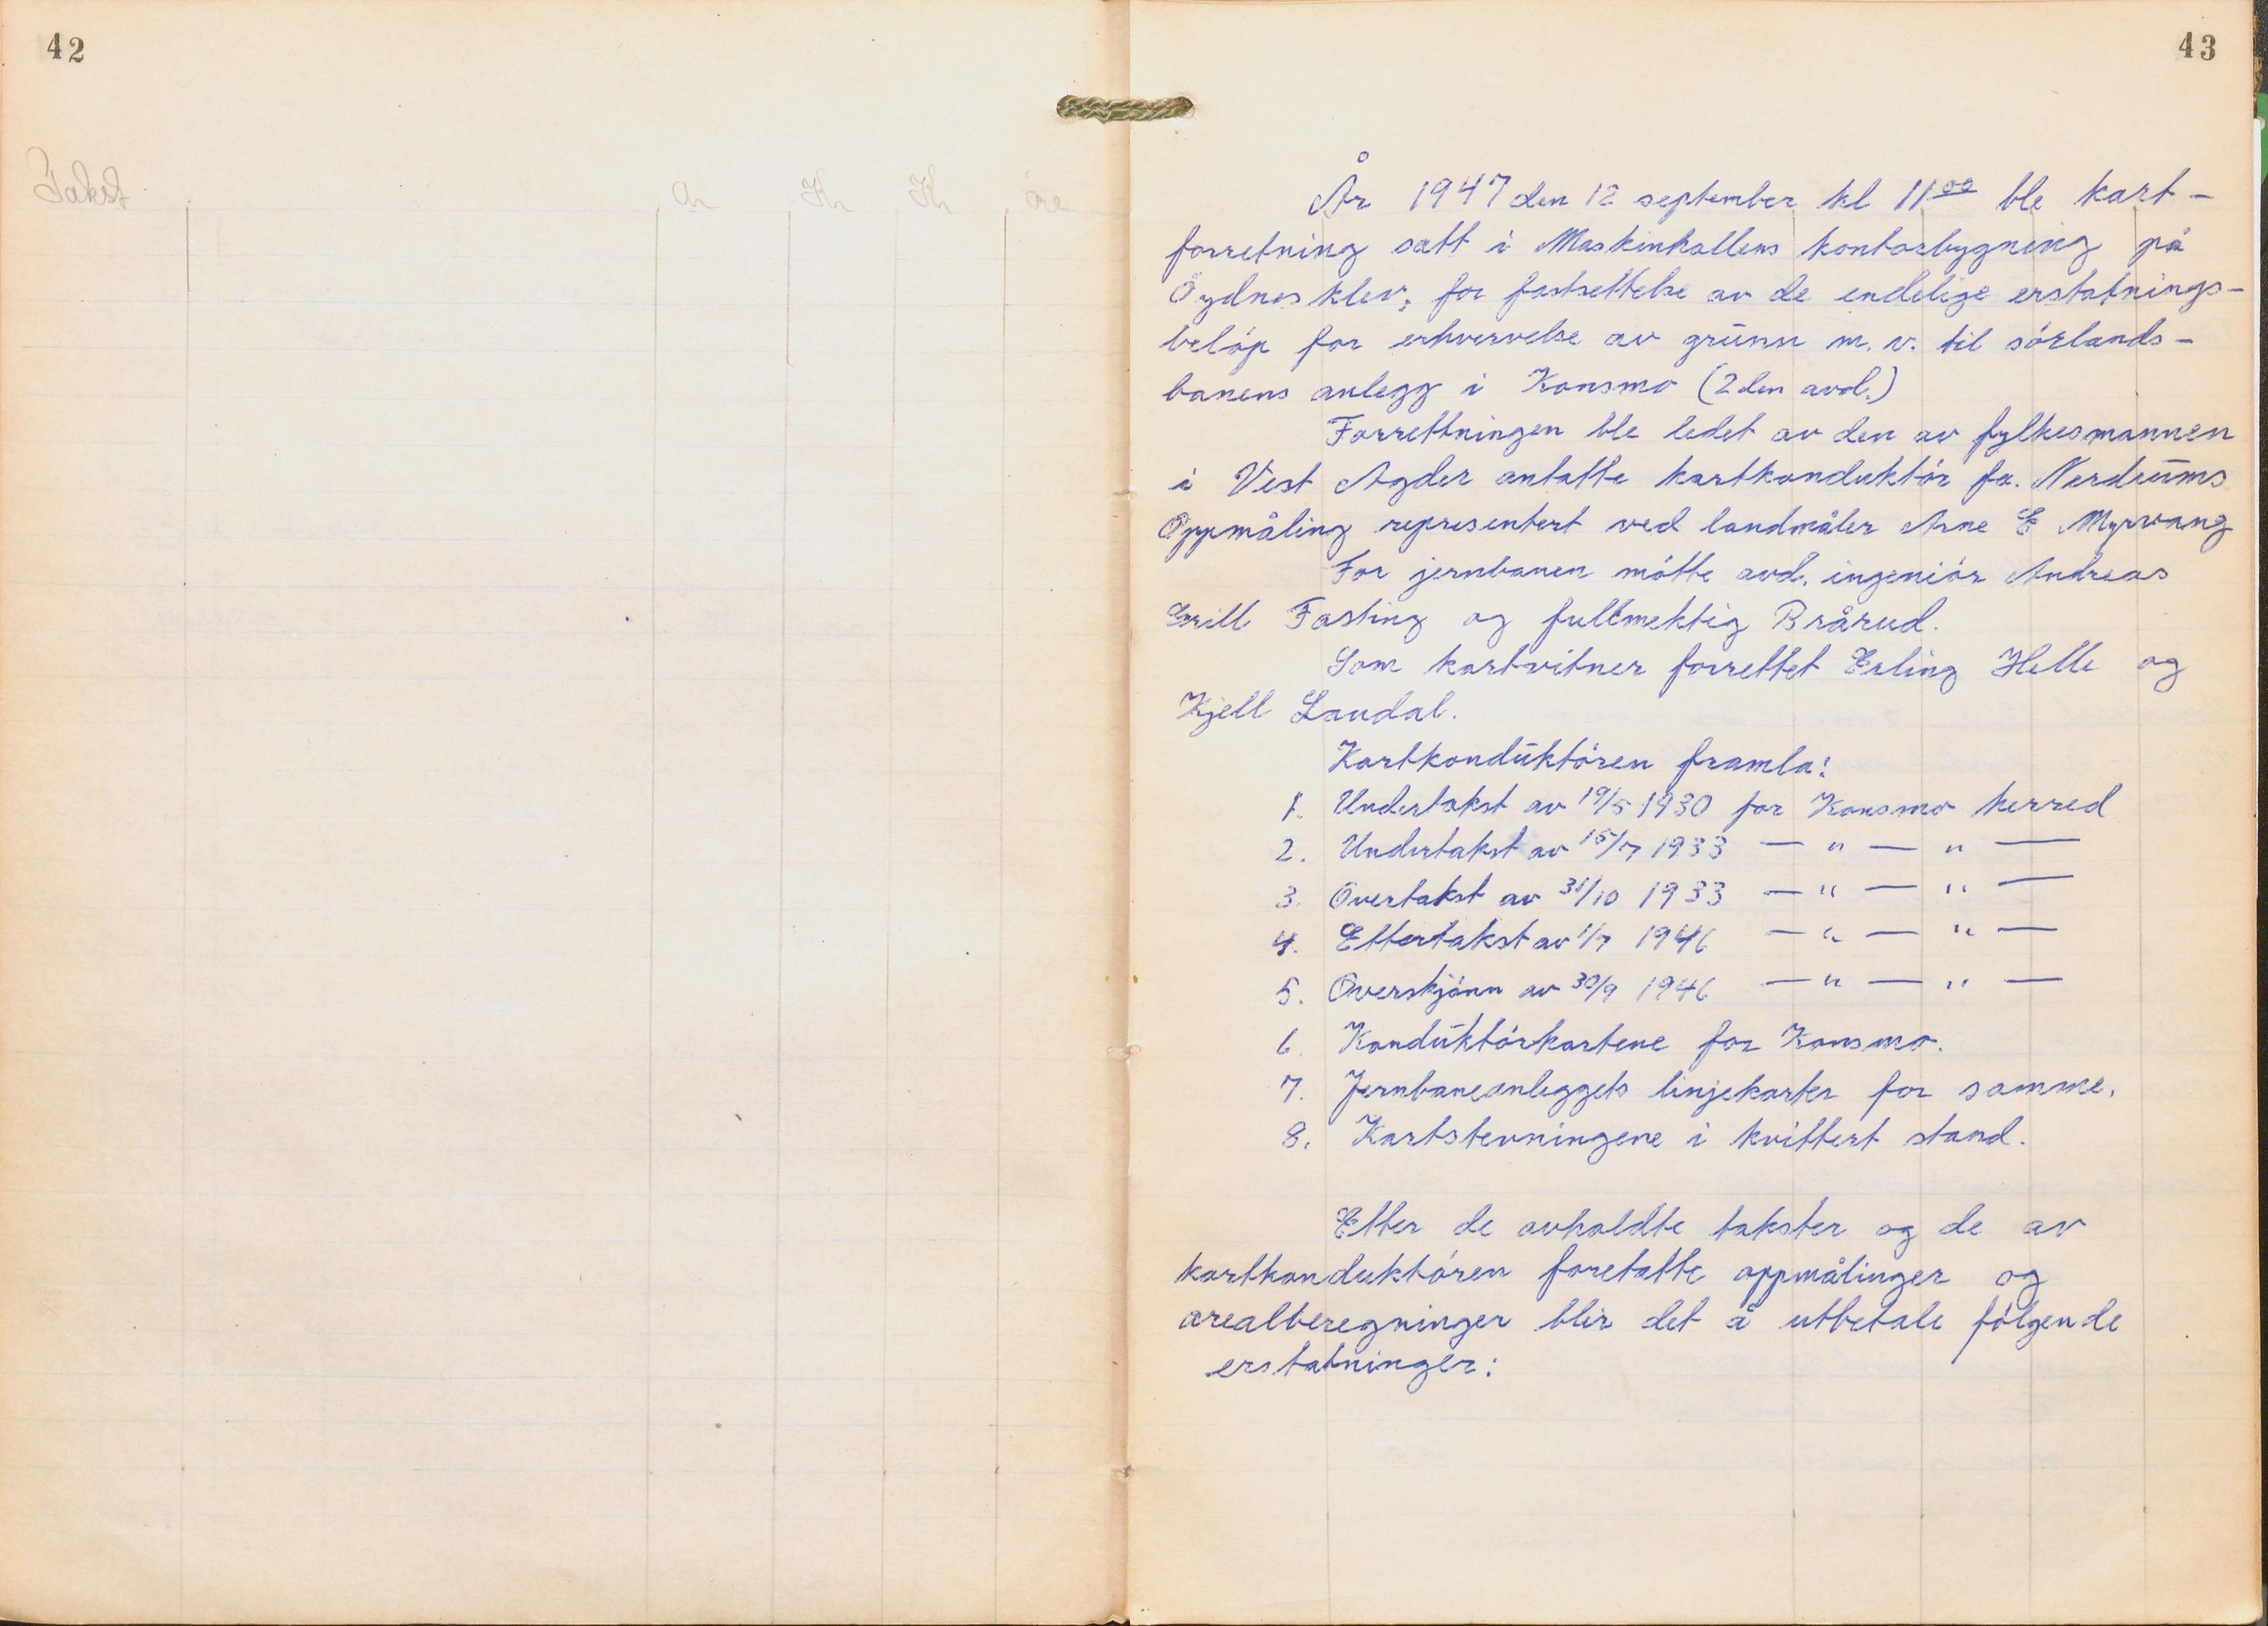 42
Takst ar Kr Kr öre
43
År 1947 den 12 september kl 11⁰⁰ ble kart-
forretning satt i Maskinhallens kontorbygning på
Öydnesklev, for fastsettelse av de endelige erstatnings-
beløp for erhvervelse av grunn m.v. til sörlands-
banens anlegg i Konsmo (2den avd.)
Forrettningen ble ledet av den av fylkesmannen
i Vest Agder antatte kartkonduktör fa. Nerdrums
Oppmåling representert ved landmåler Arne E Myrvang
For jernbanen mötte avd. ingeniör Andreas
Grill Fasting og fullmektig Brårud.
Som kartvitner forrettet Erling Helle og
Kjell Laudal.
Kartkonduktören framla:
1. Undertakst av 19/5 1930 for Konsmo herred
2. Undertakst av 15/7 1933 — " — " —
3. Overtakst av 31/10 1933 — " — " —
4. Ettertakst av 1/7 1946 — " — " —
5. Overskjönn av 30/9 1946 — " — " —
6. Konduktörkartene for Konsmo.
7. Jernbaneanleggets linjekarter for samme.
8. Kartstevningene i kvittert stand.
Etter de avholdte takster og de av
kartkonduktören foretatte oppmålinger og
arealberegninger blir det å utbetale fölgende
erstatninger: